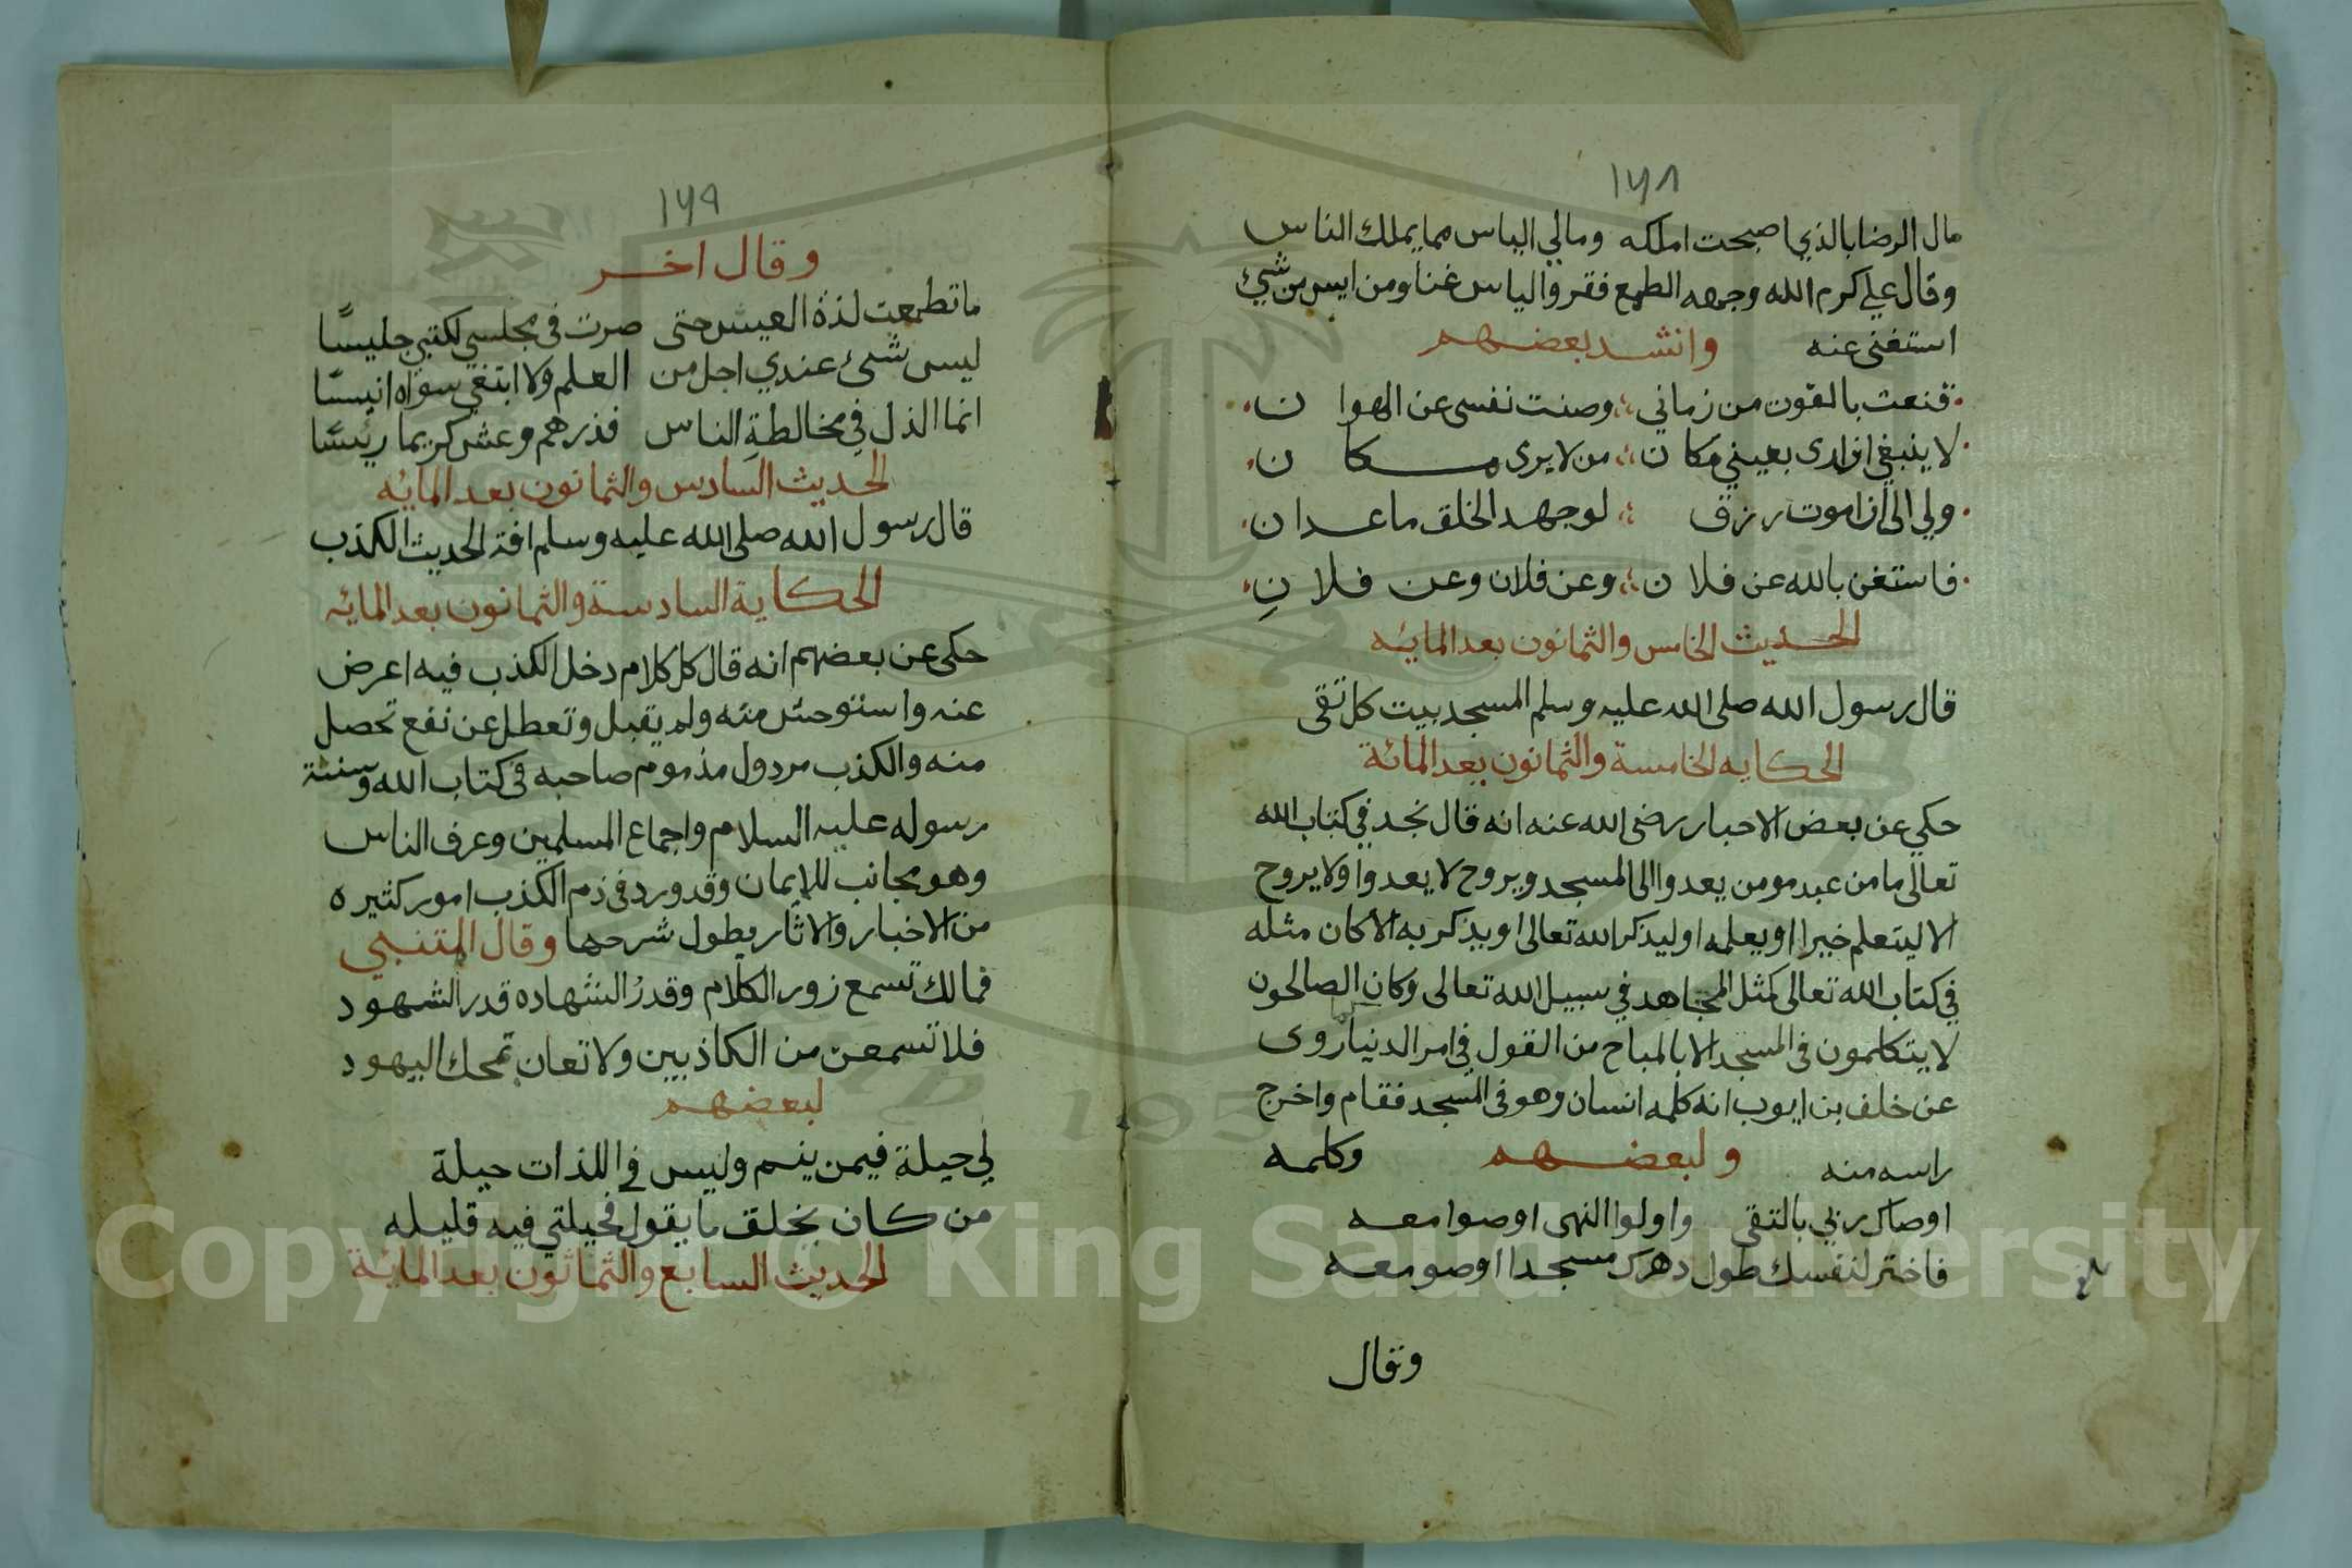 ١٦٨
مال الرضا بالذي اصبحت املكه ومالي الياس مما يملك الناس
وقال علي كرم الله وجهه الطمع فقر والياس غنا ومن ايس من شيء
استغنى عنه وانشد بعضهم
قنعت بالقوت من زماني وصنت نفسي عن الهوا ن
لا ينبغي ان ارى بعيني مكا ن من لا يرى مكا ن
ولي الى ان اموت رزق لو جهد الخلق ما عدا ن
فاستغن بالله عن فلا ن وعن فلان وعن فلا نِ
الحديث الخامس والثمانون بعد المايئه
قال رسول الله صلى الله عليه وسلم المسجد بيت كل تقى
الحكايه الخامسة والثمانون بعد المائة
حكي عن بعض الاحبار رضى الله عنه انه قال نجد في كتاب الله
تعالى ما من عبد مومن يعدوا الى المسجد ويروح لا يعدوا ولا يروح
الا ليتعلم خيرا او يعلمه او ليذكر الله تعالى او يذكر به الا كان مثله
في كتاب الله تعالى كمثل المجاهد في سبيل الله تعالى وكان الصالحون
لا يتكلمون في المسجد الا بالمباح من القول في امر الدنيا روى
عن خلف بن ايوب انه كلمه انسان وهو في المسجد فقام واخرج
راسه منه ولبعضهم وكلمه
اوصاك ربي بالتقى واولوا النهى اوصوا معه
فاختر لنفسك طول دهرك مسجدا او صومعه
وقال
١٦٩
وقال اخر
ما تطمعت لذة العيش حتى صرت في مجلسي لكتبي جليسًا
ليس شئ عندي اجل من العلم ولا ابتغي سواه انيسًا
انما الذل في مخالطةِ الناس فذرهم وعش كريما رئيسًا
الحديث السادس والثمانون بعد المايئه
قال رسول الله صلى الله عليه وسلم افة الحديث الكذب
الحكاية السادسة والثمانون بعد المائه
حكى عن بعضهم انه قال كل كلام دخل الكذب فيه اعرض
عنه واستوحش منه ولم يقبل وتعطل عن نفع تحصل
منه والكذب مردول مذموم صاحبه في كتاب الله وسنة
رسوله عليه السلام واجماع المسلمين وعرف الناس
وهو مجانب للايمان وقد ورد في ذم الكذب امور كثيره
من الاخبار والاثار يطول شرحها وقال المتنبي
فمالك تسمع زور الكلام وقدرُ الشهاده قدر الشهود
فلا تسمعن من الكاذبين ولا تعان بمحك اليهود
لبعضهم
لي حيلة فيمن ينم وليس في اللذات حيلة
من كان يخلق ما يقول فحيلتي فيه قليله
الحديث السابع والثمانون بعد المائية
Copyright © King Saud University
1957